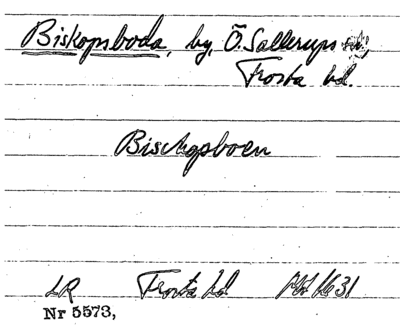 Biskopsboda, by, Ö. Sallerups
Frosta hd.
Bischopboen
LR Frosta hd 1631
Nr 5573,